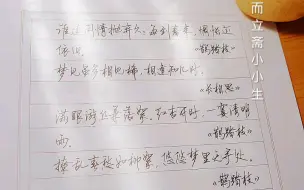 谁道闲情抛弃久，每到春来，惆怅还
依旧。
《鹊踏枝》
梦见虽多相见稀，相逢知几时。
《长相思》
满眼游丝兼落絮，红杏开时，一霎清明
雨。
《鹊踏枝》
撩乱春愁如柳絮，悠悠梦里无寻处。
《鹊踏枝》
而立斋小小生